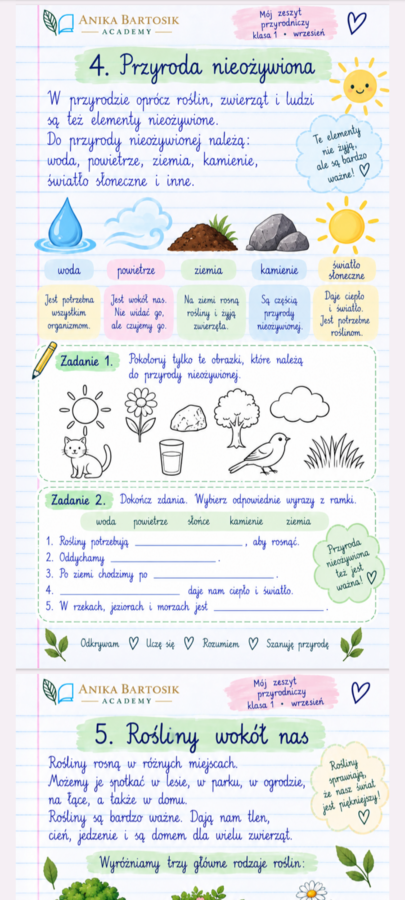 ANIKA BARTOSIK
ACADEMY
Mój zeszyt
przyrodniczy
klasa 1 • wrzesień
4. Przyroda nieożywiona
W przyrodzie oprócz roślin, zwierząt i ludzi
są też elementy nieożywione.
Do przyrody nieożywionej należą:
woda, powietrze, ziemia, kamienie,
światło słoneczne i inne.
Te elementy
nie żyją,
ale są bardzo
ważne!
woda
powietrze
ziemia
kamienie
światło
słoneczne
Jest potrzebna
wszystkim
organizmom.
Jest wokół nas.
Nie widać go,
ale czujemy go.
Na ziemi rosną
rośliny i żyją
zwierzęta.
Są częścią
przyrody
nieożywionej.
Daje ciepło
i światło.
Jest potrzebne
roślinom.
Zadanie 1. Pokoloruj tylko te obrazki, które należą
do przyrody nieożywionej.
Zadanie 2. Dokończ zdania. Wybierz odpowiednie wyrazy z ramki.
woda powietrze słońce kamienie ziemia
1. Rośliny potrzebują ____________, aby rosnąć.
2. Oddychamy ____________.
3. Po ziemi chodzimy po ____________.
4. ____________ daje nam ciepło i światło.
5. W rzekach, jeziorach i morzach jest ____________.
Przyroda
nieożywiona
też jest
ważna!
Odkrywam Uczę się Rozumiem Szanuję przyrodę
ANIKA BARTOSIK
ACADEMY
Mój zeszyt
przyrodniczy
klasa 1 • wrzesień
5. Rośliny wokół nas
Rośliny rosną w różnych miejscach.
Możemy je spotkać w lesie, w parku, w ogrodzie,
na łące, a także w domu.
Rośliny są bardzo ważne. Dają nam tlen,
cień, jedzenie i są domem dla wielu zwierząt.
Rośliny
sprawiają,
że nasz świat
jest piękniejszy!
Wyróżniamy trzy główne rodzaje roślin: